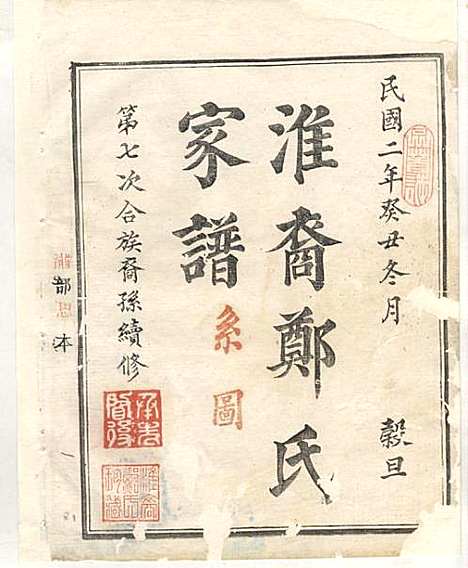 民國二年癸丑冬月
穀旦
淮裔鄭氏
家譜
系圖
第七次合族裔孫續修
承先
啟後
部
本
一